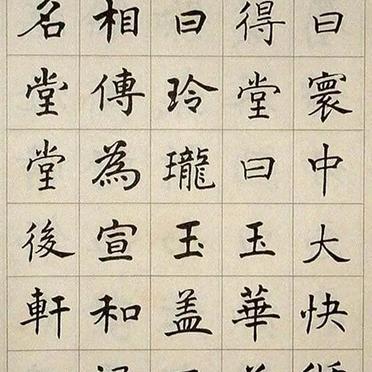 曰寰中大快
得堂曰玉華
曰玲瓏玉盖
相傳為宣和
名堂堂後軒